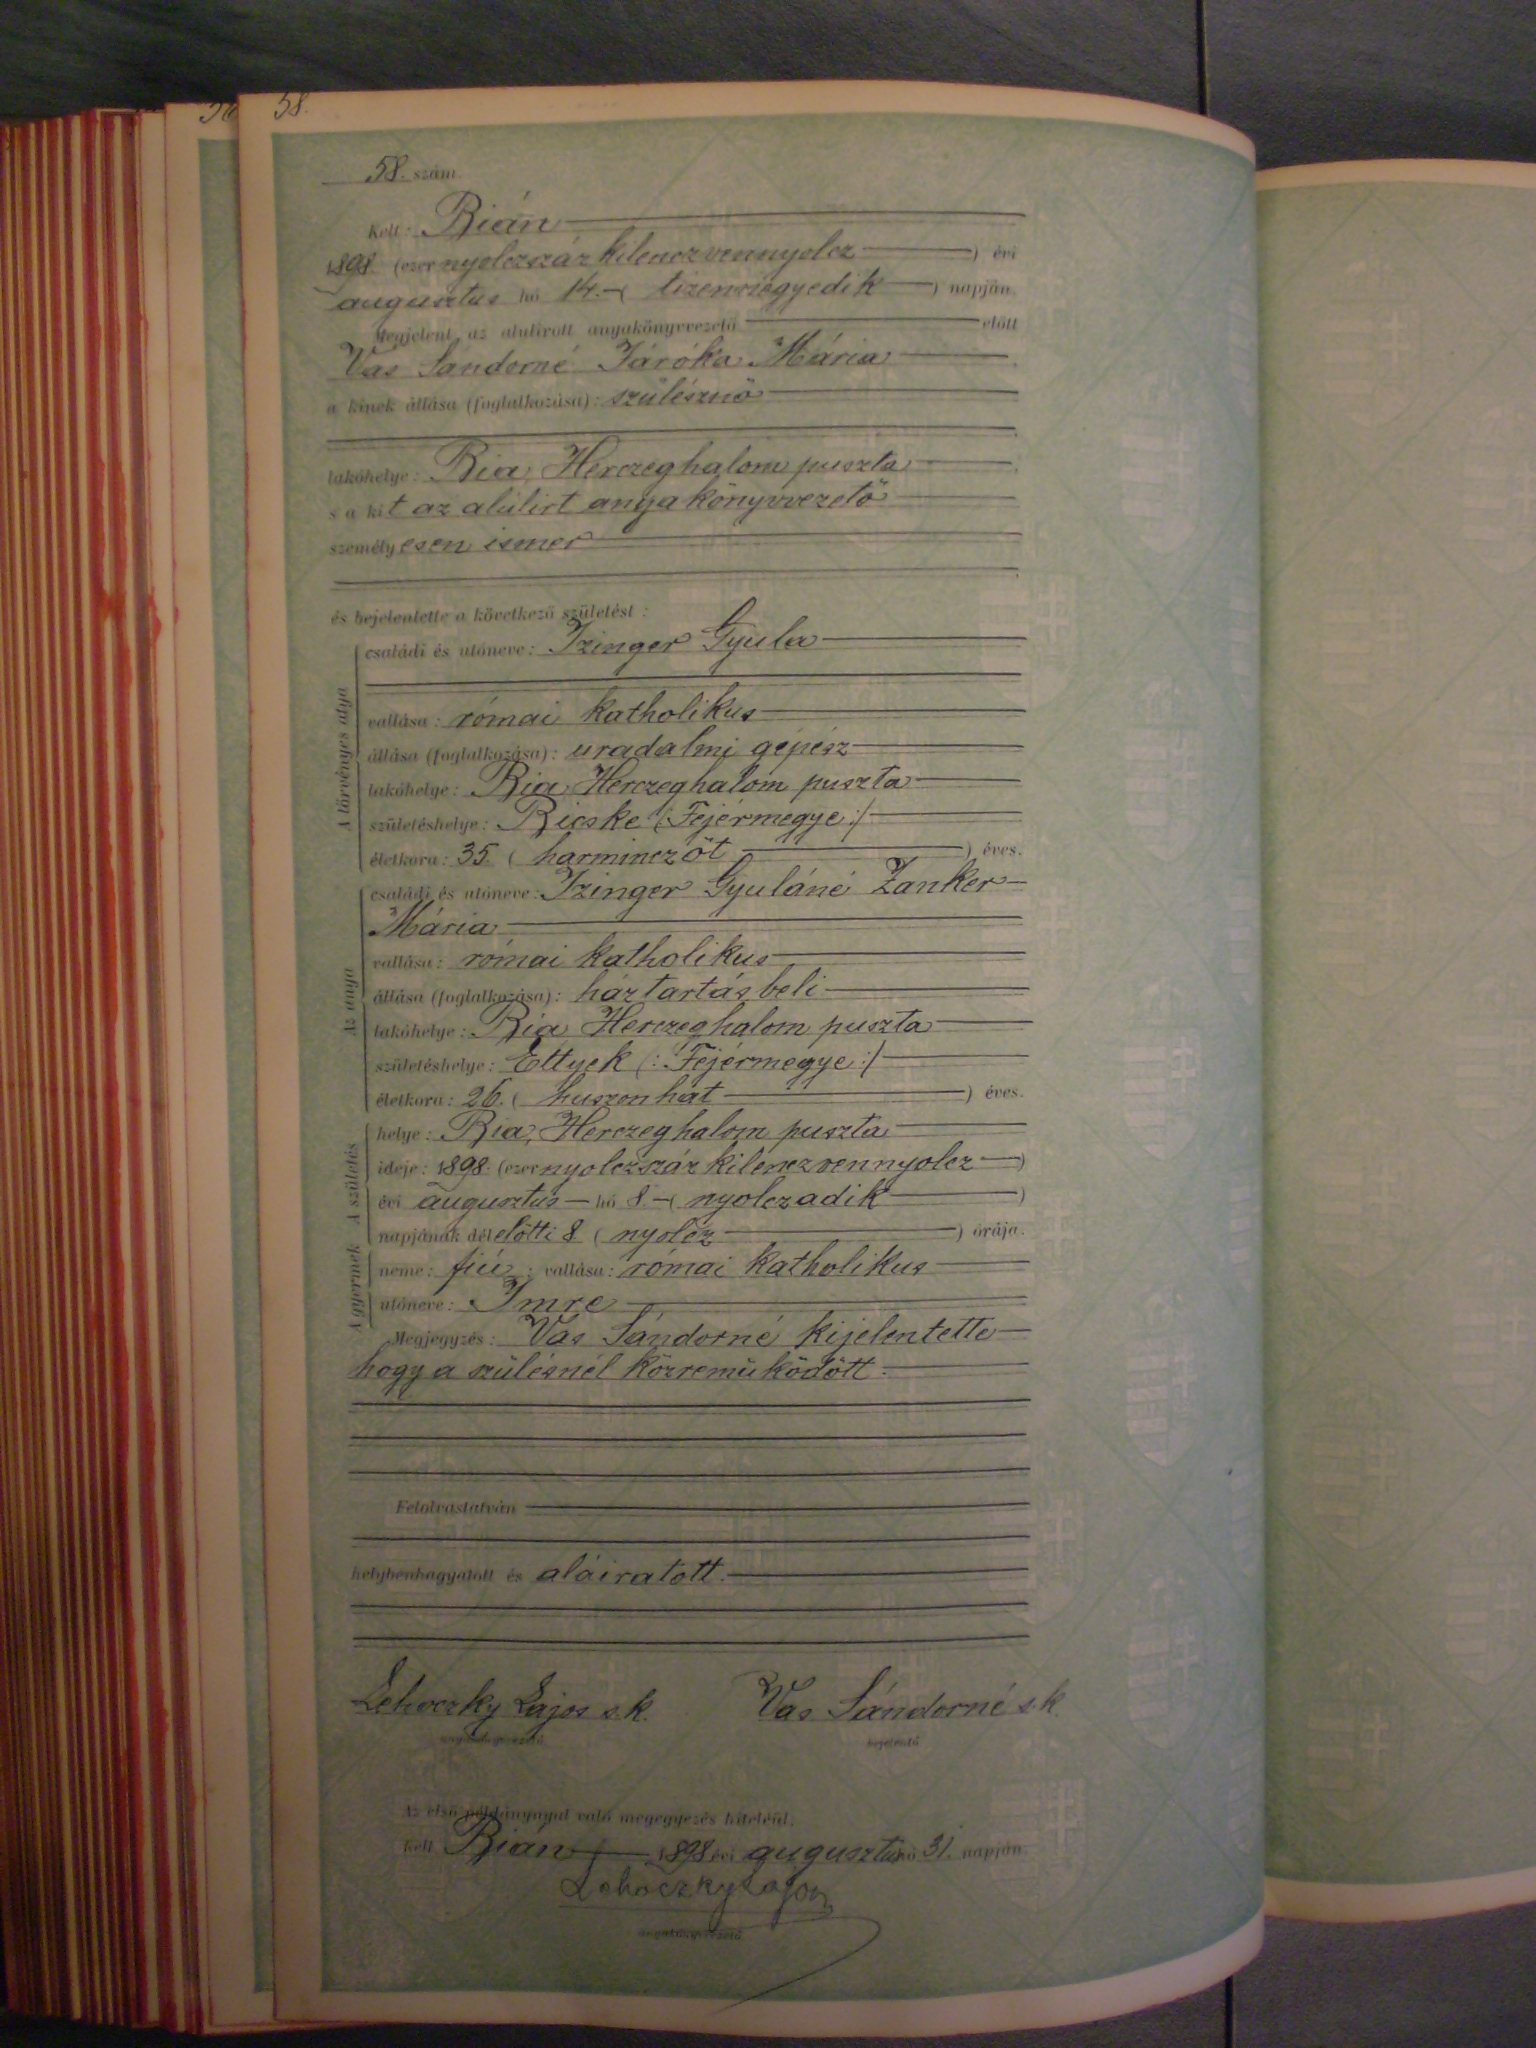 58.
58. szám.
Kelt: Bián
1898. (ezer nyolczszáz kilenczvennyolcz) évi
augusztus hó 14. (tizennégyedik) napján.
Megjelent az alulirott anyakönyvvezető előtt
Vas Sándorné Járóka Mária
a kinek állása (foglalkozása): szülésznő
lakóhelye: Bia, Herczeghalom puszta
s a kit az alúlirt anyakönyvvezető
személyesen ismer
és bejelentette a következő születést:
A törvényes atya
családi és utóneve: Izinger Gyula
vallása: római katholikus
állása (foglalkozása): uradalmi gépész
lakóhelye: Bia, Herczeghalom puszta
születéshelye: Bicske (: Fejérmegye :)
életkora: 35. (harminczöt) éves.
Az anya
családi és utóneve: Izinger Gyuláné Zanker
Mária
vallása: római katholikus
állása (foglalkozása): háztartásbeli
lakóhelye: Bia Herczeghalom puszta
születéshelye: Ettyek (: Fejérmegye :)
életkora: 26. (huszonhat) éves.
A születés
helye: Bia, Herczeghalom puszta
ideje: 1898. (ezer nyolczszáz kilenczvennyolcz)
évi augusztus hó 8. (nyolczadik)
napjának délelőtti 8 (nyolcz) órája.
A gyermek
neme: fiú; vallása: római katholikus
utóneve: Imre
Megjegyzés: Vas Sándorné kijelentette
hogy a szülésnél közremüködött.
Felolvastatván
helybenhagyatott és aláiratott.
Lehoczky Lajos s.k. Vas Sándorné s.k.
anyakönyvvezető bejelentő
Az első példánynyal való megegyezés hiteléül.
Kelt Bián 1898 évi augusztus hó 31. napján.
Lehoczky Lajos
anyakönyvvezető